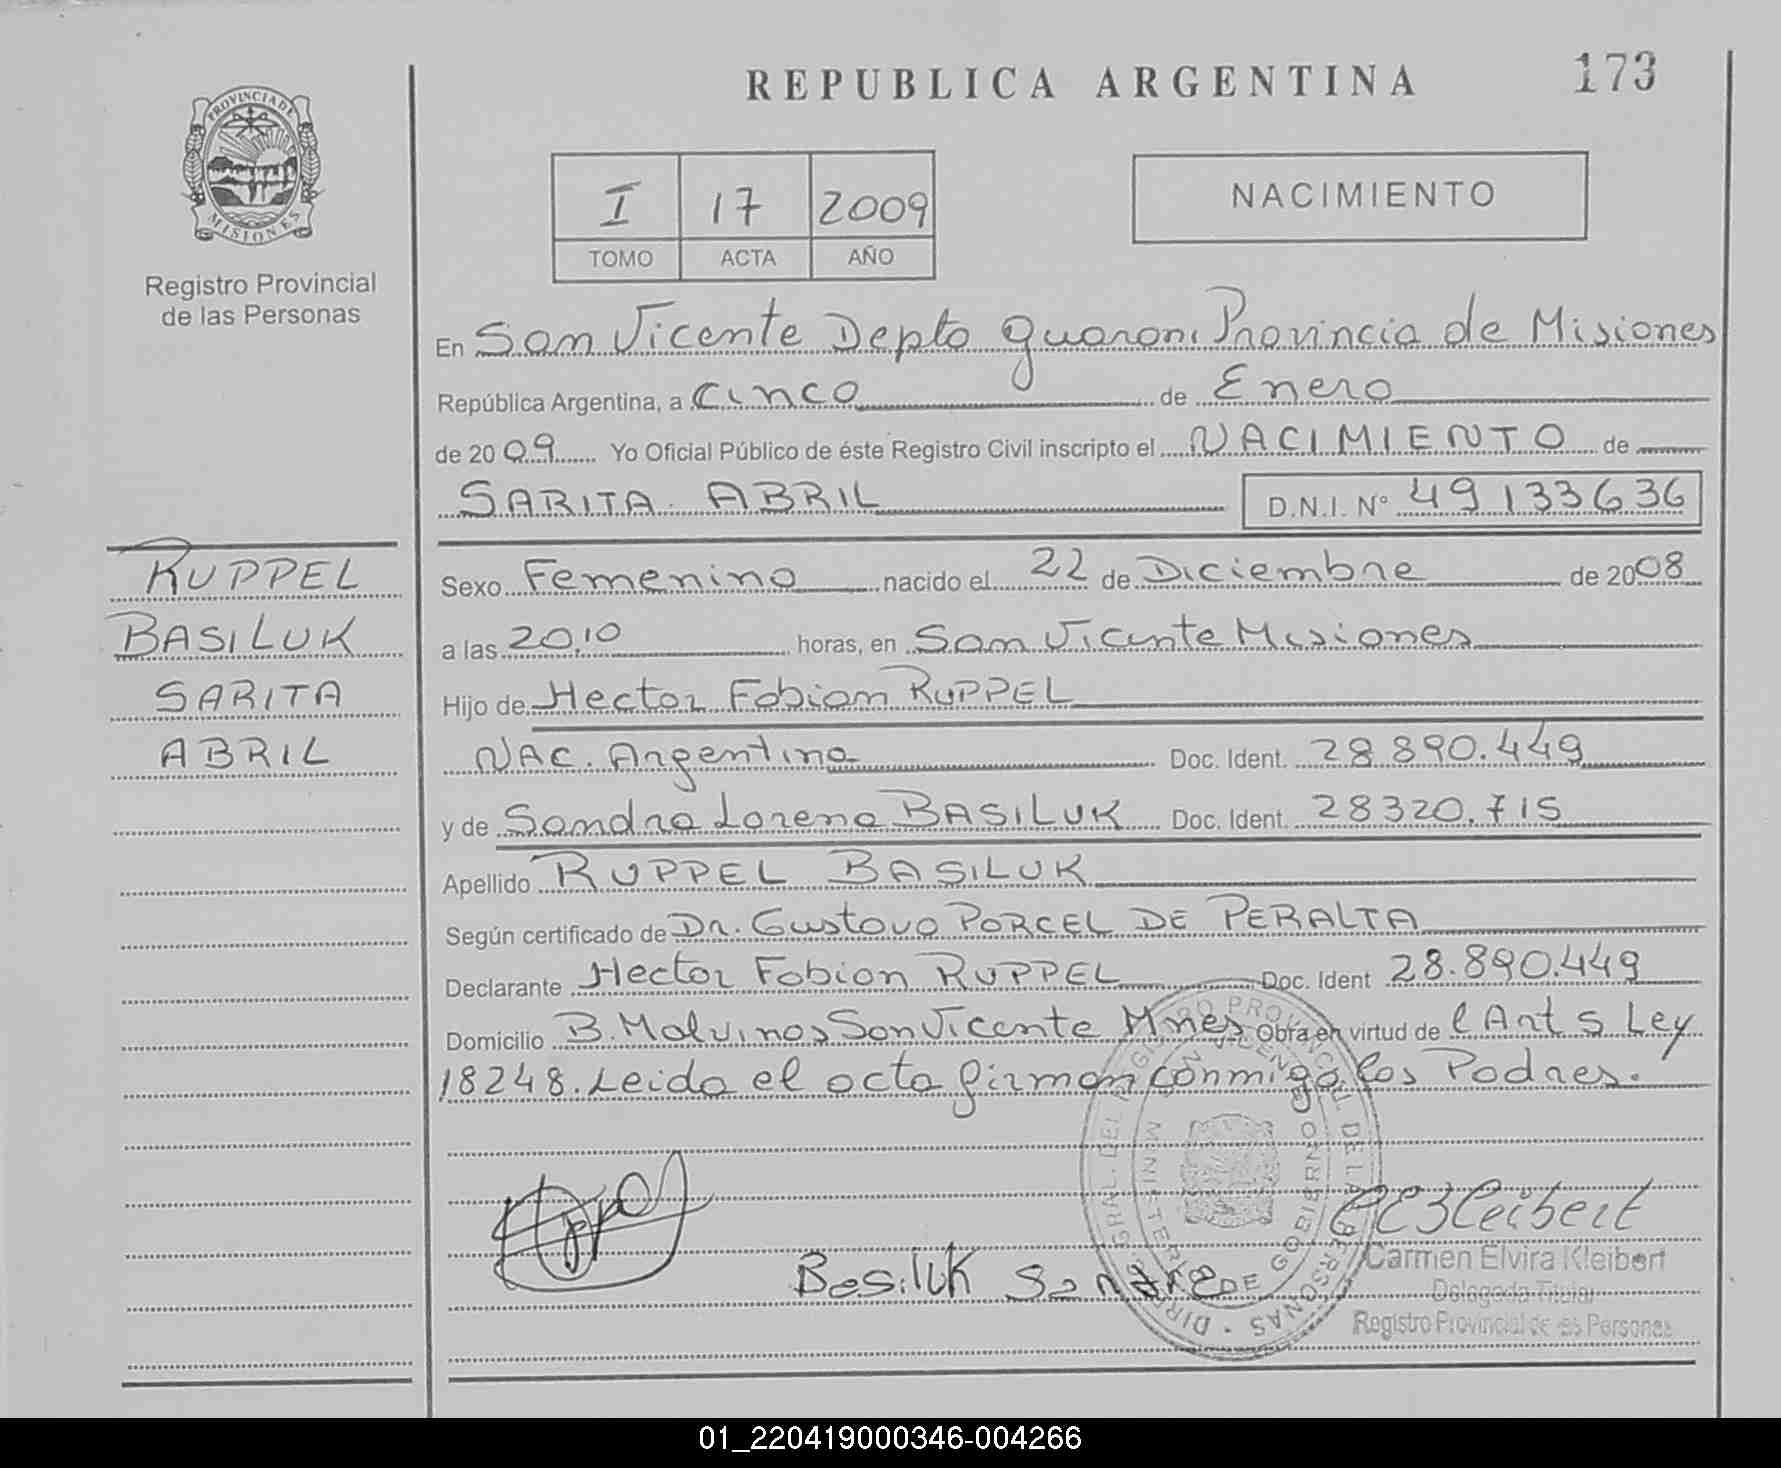 REPUBLICA ARGENTINA
173
PROVINCIA DE
MISIONES
Registro Provincial
de las Personas
I 17 2009
TOMO ACTA AÑO
NACIMIENTO
En San Vicente Depto Guarani Provincia de Misiones
República Argentina, a Cinco de Enero
de 20 09 Yo Oficial Público de éste Registro Civil inscripto el NACIMIENTO de
SARITA ABRIL D.N.I. Nº 49133636
RUPPEL
BASILUK
SARITA
ABRIL
Sexo Femenino nacido el 22 de Diciembre de 2008
a las 20,10 horas, en San Vicente Misiones
Hijo de Hector Fabian RUPPEL
NAC. Argentina Doc. Ident. 28.890.449
y de Sandra Lorena BASILUK Doc. Ident. 28320.715
Apellido RUPPEL BASILUK
Según certificado de Dr. Gustavo PORCEL DE PERALTA
Declarante Hector Fabian RUPPEL Doc. Ident 28.890.449
Domicilio B. Malvinas San Vicente Mnes Obra en virtud de l Art 5 Ley
18248. Leida el acta firman conmigo los Padres.
Basiluk Sandra
CEKleibert
Carmen Elvira Kleibert
Delegada Titular
Registro Provincial de las Personas
01_220419000346-004266